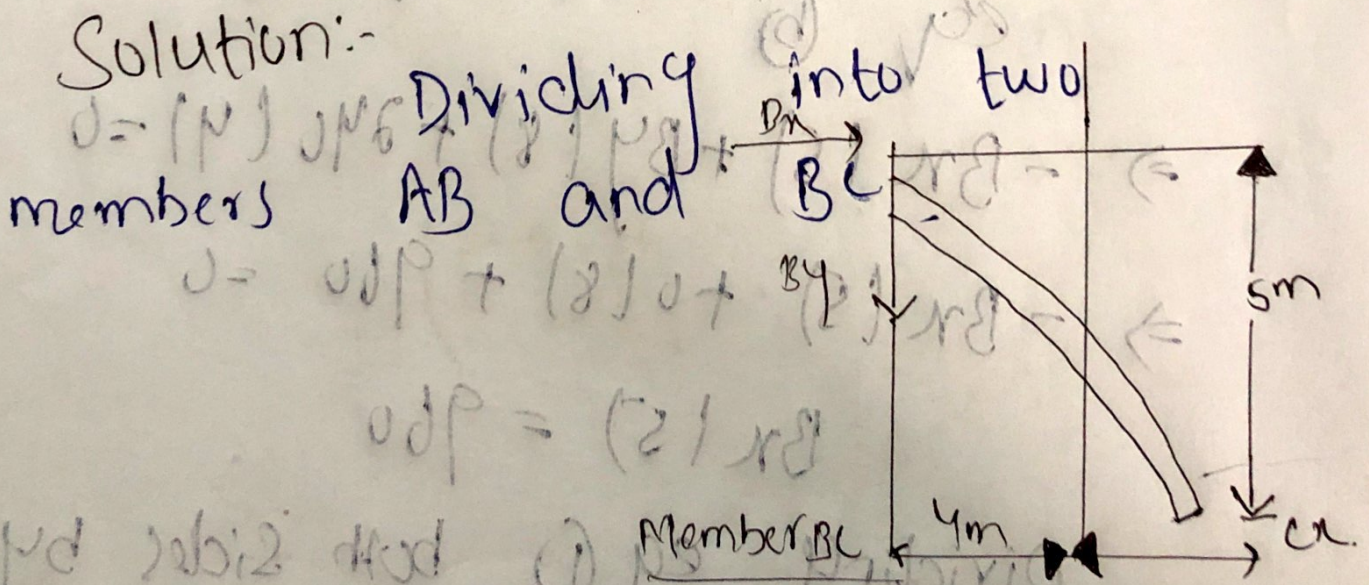 Solution:-
Dividing into two
members AB and BC
Bx
By
5m
Member BC
4m
Cx.